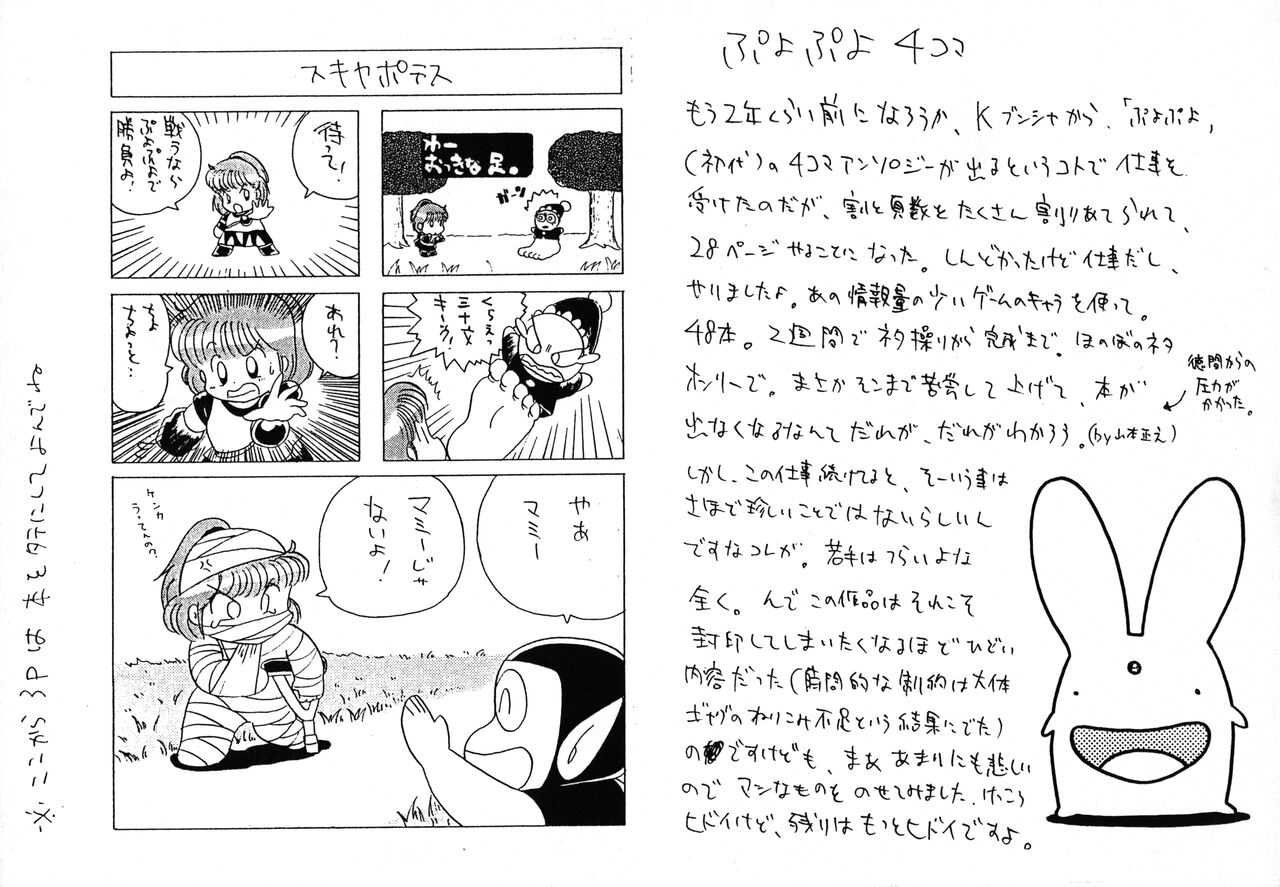 ぷよぷよ 4コマ
もう2年くらい前になろうか、Kブンシャから、「ぷよぷよ」
(初代)の4コマアンソロジーが出るというコトで仕事を
受けたのだが、割と頁数をたくさん割りあてられて、
28ページやることになった。しんどかったけど仕事だし、
やりましたよ。あの情報量の少いゲームのキャラを使って。
48本。2週間でネタ操りから完成まで。ほのぼのネタ
オンリーで。まさかそこまで苦労して上げて、本が
出なくなるなんてだれが、だれがわかろう。(by山本正之)
徳間からの
圧力が
かかった。
しかし、この仕事続けてると、そーいう事は
さほど珍しいことではないらしいん
ですなコレが。若手はつらいよな
全く。んでこの作品はそれこそ
封印してしまいたくなるほどひどい
内容だった(時間的な制約は大体
ギャグのねりこみ不足という結果にでた)
のですけども、まああまりにも悲しい
のでマシなものをのせてみました。けっこう
ヒドイけど、残りはもっとヒドイですよ。
スキヤポデス
わー
おっきな足。
ガーン
待って!
戦うなら
ぷよぷよで
勝負よ!
くらえっ
三十文
キーック!
あれ?
ちょ
ちょっと…
やあ
マミー
マミーじゃ
ないよ!
ケンカ
うってんの?
※ここから3Pは本をタテにしてよんでね